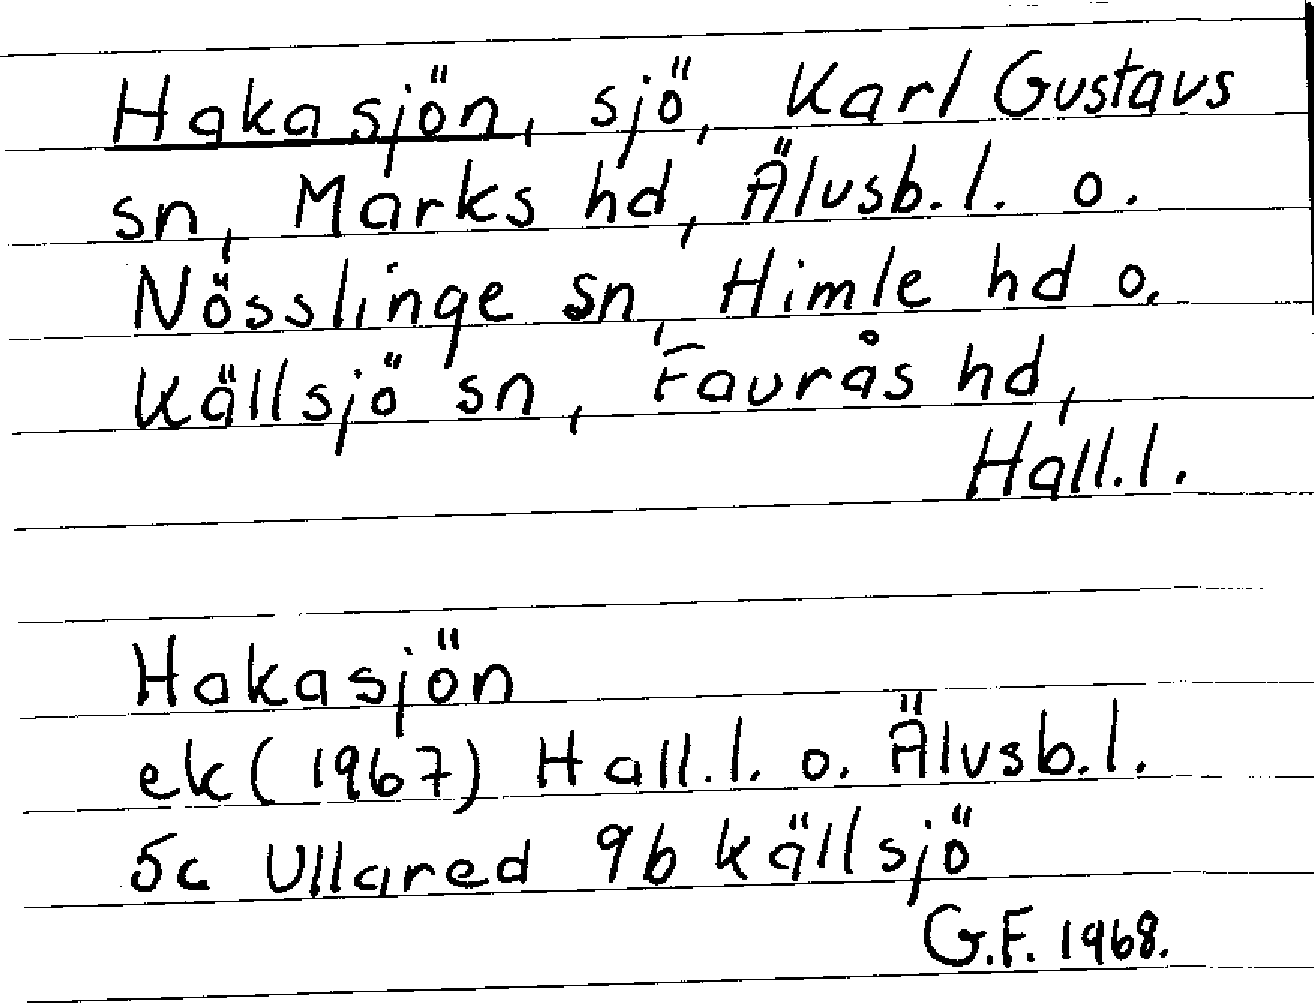 Hakasjön, sjö, Karl Gustavs
sn, Marks hd, Älvsb.l. o.
Nösslinge sn, Himle hd o.
Källsjö sn, Faurås hd,
Hall.l.
Hakasjön
ek (1967) Hall.l. o. Älvsb.l.
5c Ullared 9b Källsjö
G.F. 1968.